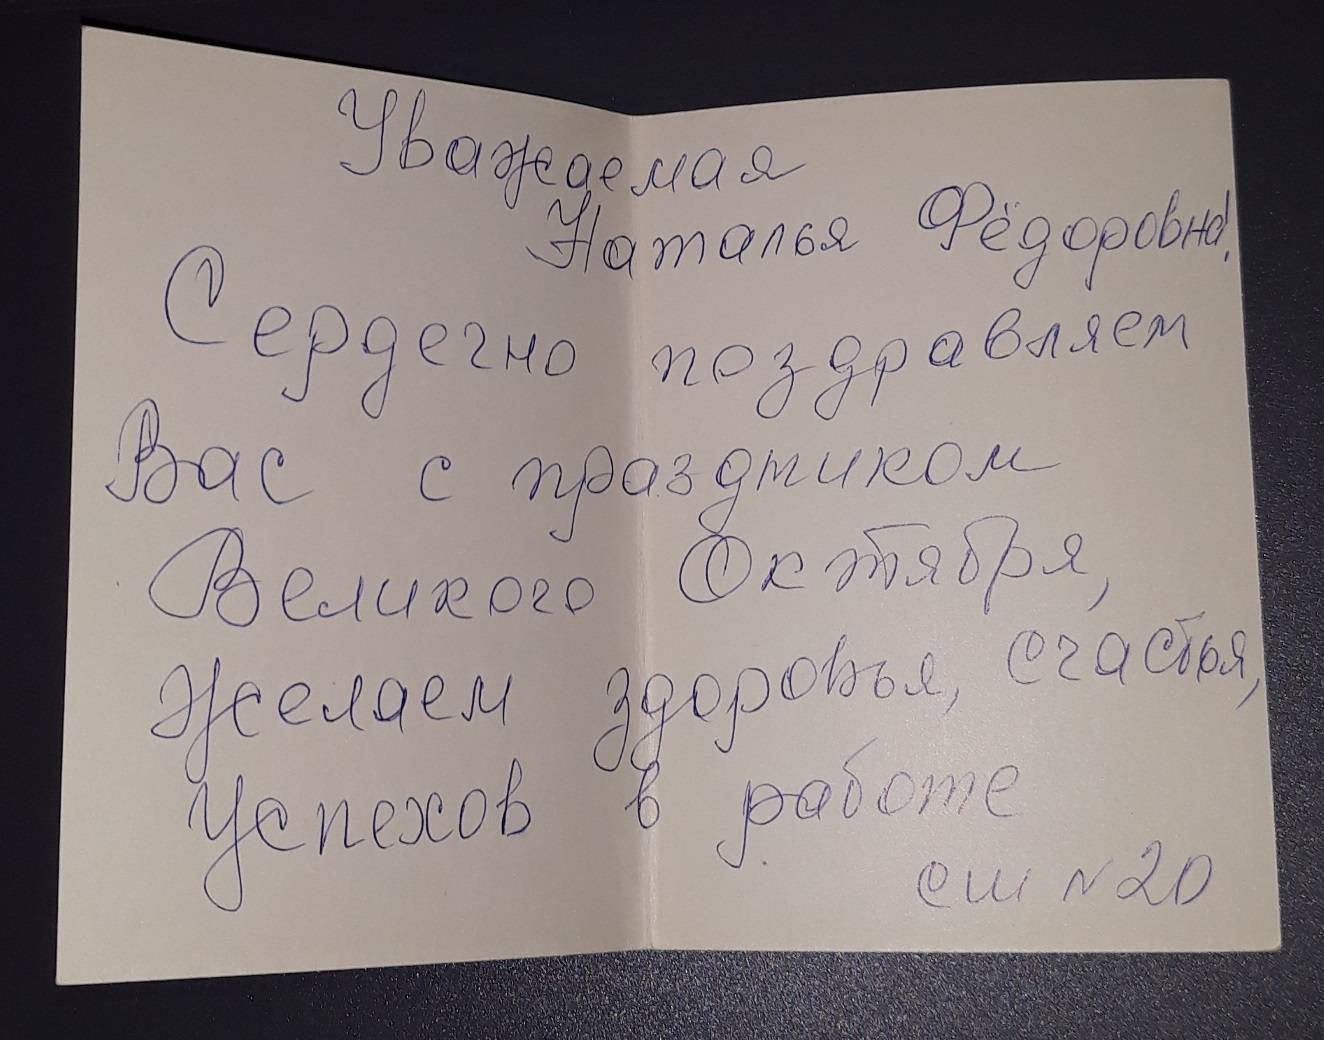 Уважаемая
Наталья Фёдоровна!
Сердечно поздравляем
Вас с праздником
Великого Октября,
желаем здоровья, счастья,
успехов в работе
сш №20